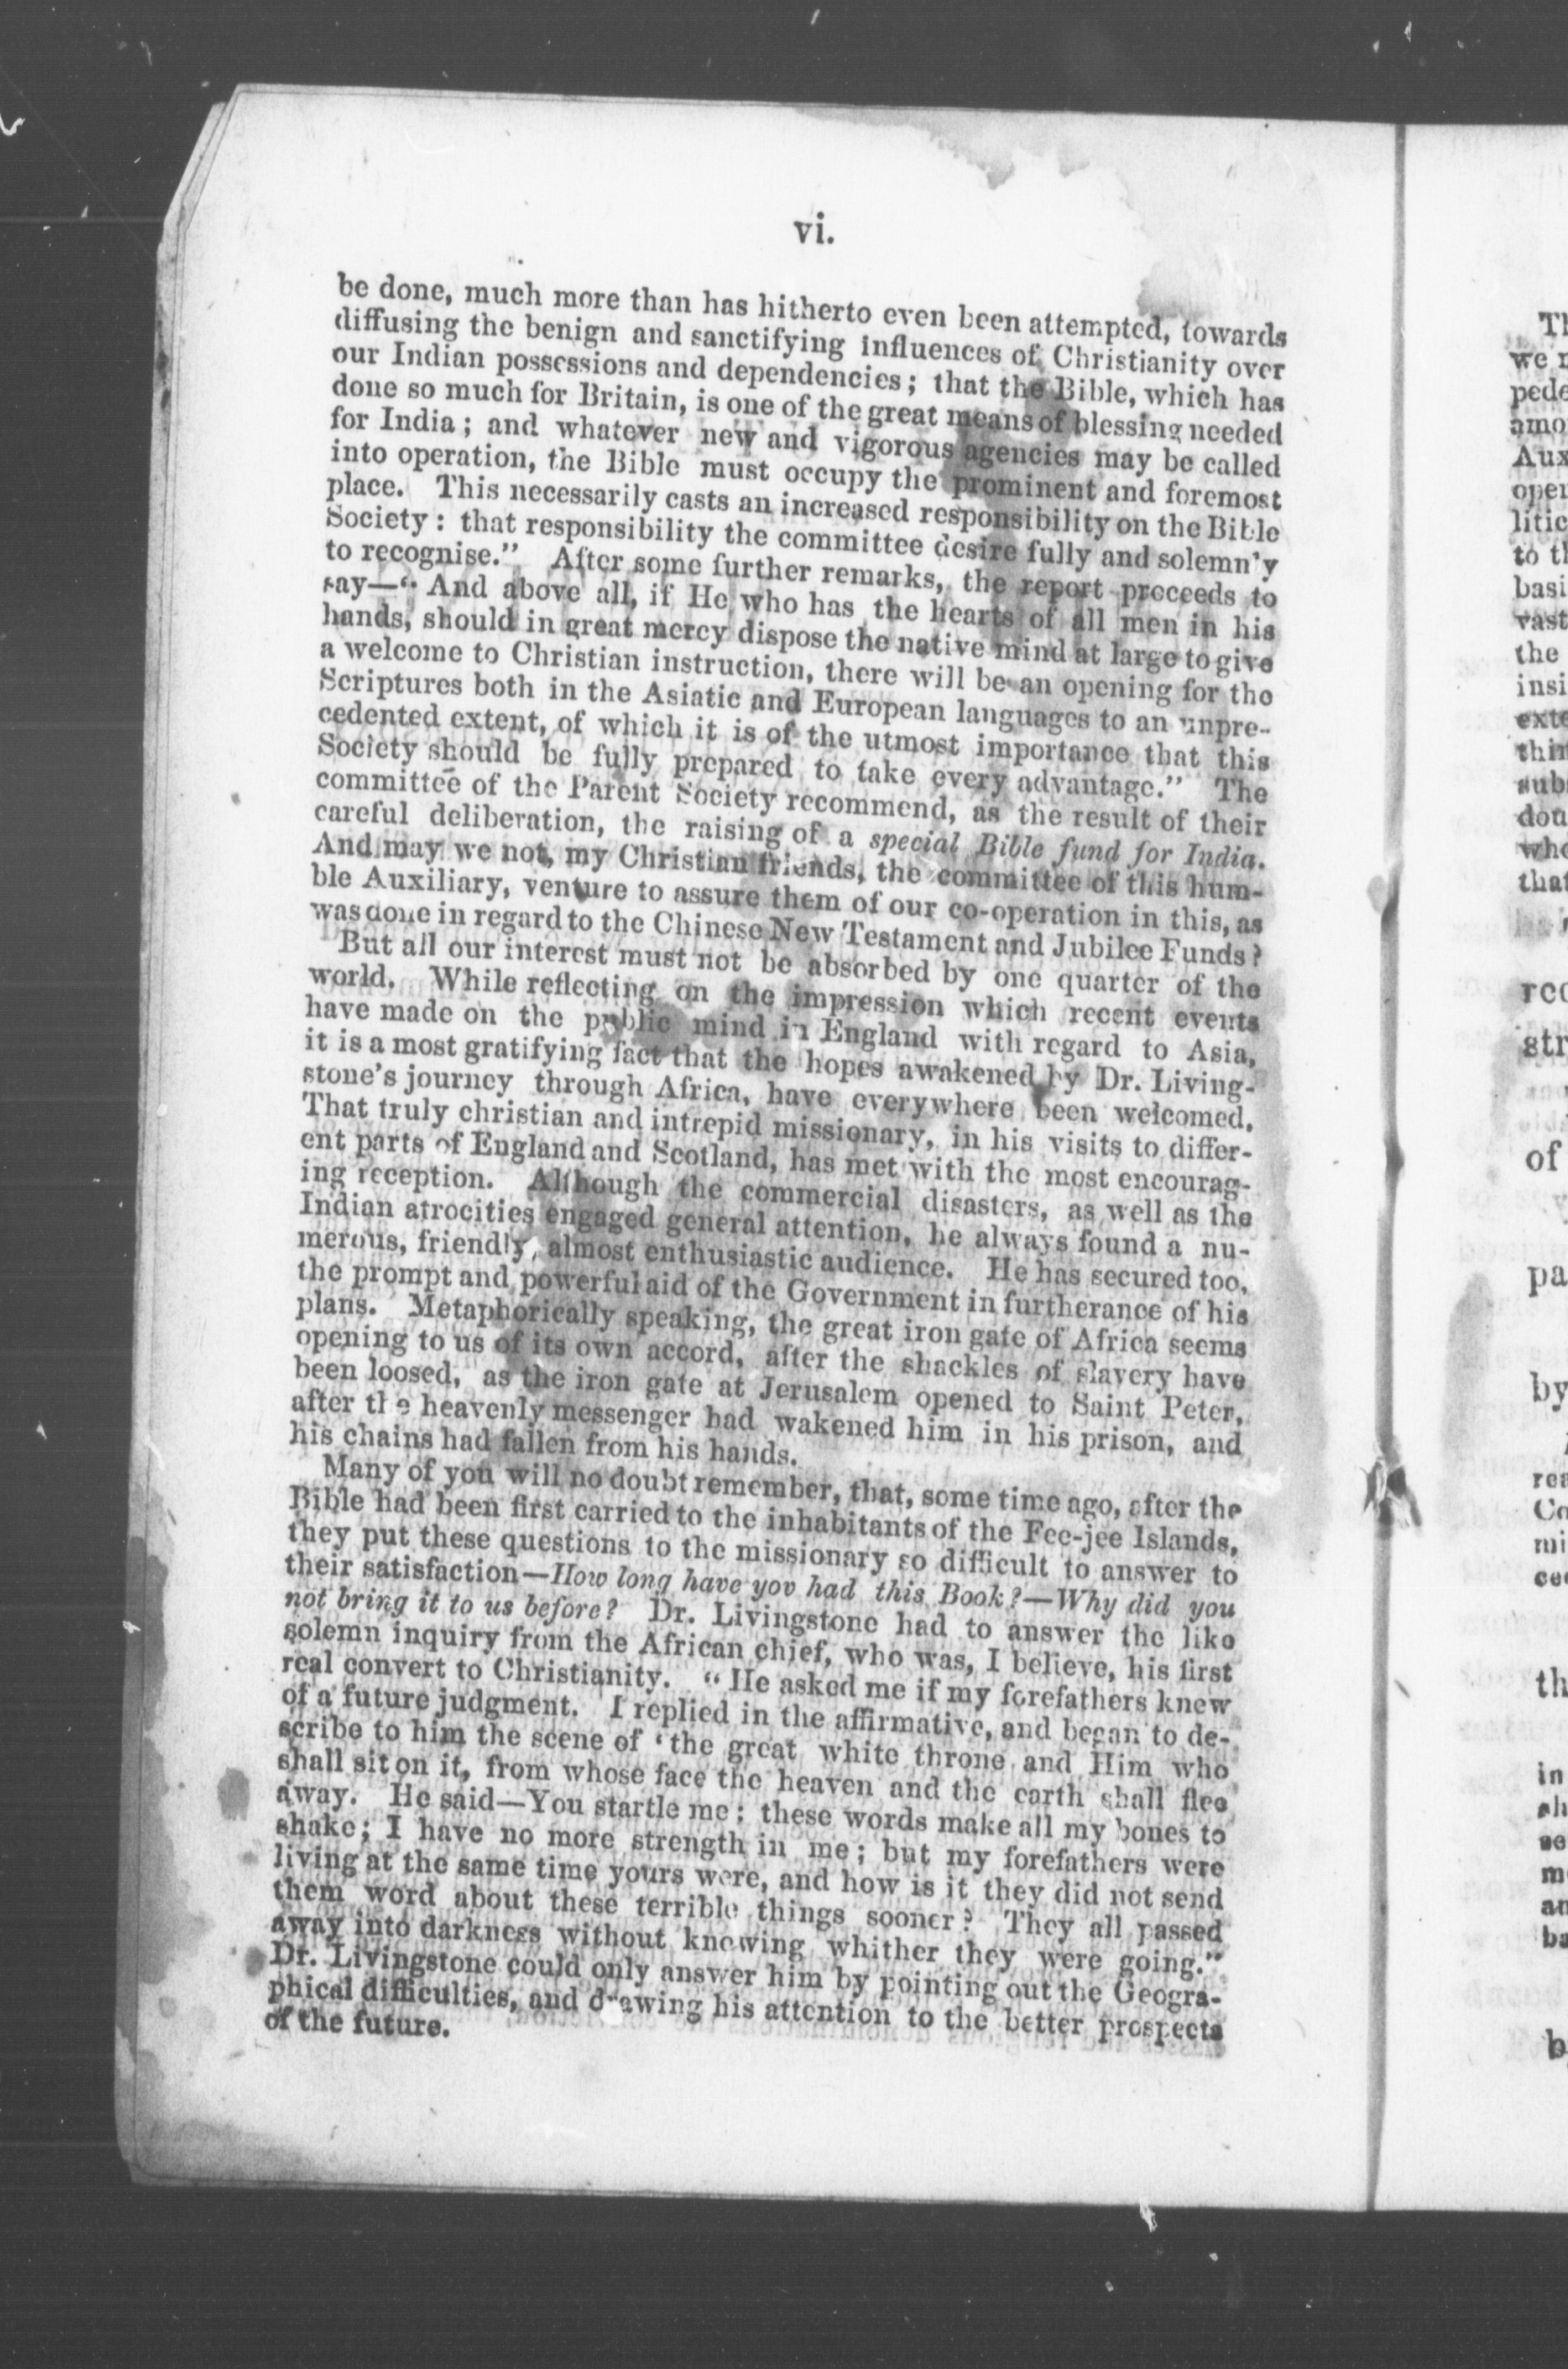 vi.
be done, much more than has hitherto even been attempted, towards
diffusing the benign and sanctifying influences of Christianity over
our Indian possessions and dependencies; that the Bible, which has
done so much for Britain, is one of the great means of blessing needed
for India; and whatever new and vigorous agencies may be called
into operation, the Bible must occupy the prominent and foremost
place. This necessarily casts an increased responsibility on the Bible
Society: that responsibility the committee desire fully and solemn'y
to recognise." After some further remarks, the report proceeds to
say—"And above all, if He who has the hearts of all men in his
hands, should in great mercy dispose the native mind at large to give
a welcome to Christian instruction, there will be an opening for the
Scriptures both in the Asiatic and European languages to an unpre-
cedented extent, of which it is of the utmost importance that this
Society should be fully prepared to take every advantage." The
committee of the Parent Society recommend, as the result of their
careful deliberation, the raising of a special Bible fund for India.
And may we not, my Christian friends, the committee of this hum-
ble Auxiliary, venture to assure them of our co-operation in this, as
was done in regard to the Chinese New Testament and Jubilee Funds?
But all our interest must not be absorbed by one quarter of the
world. While reflecting on the impression which recent events
have made on the public mind in England with regard to Asia,
it is a most gratifying fact that the hopes awakened by Dr. Living-
stone's journey through Africa, have everywhere been welcomed.
That truly christian and intrepid missionary, in his visits to differ-
ent parts of England and Scotland, has met with the most encourag-
ing reception. Although the commercial disasters, as well as the
Indian atrocities engaged general attention, he always found a nu-
merous, friendly, almost enthusiastic audience. He has secured too,
the prompt and powerful aid of the Government in furtherance of his
plans. Metaphorically speaking, the great iron gate of Africa seems
opening to us of its own accord, after the shackles of slavery have
been loosed, as the iron gate at Jerusalem opened to Saint Peter,
after the heavenly messenger had wakened him in his prison, and
his chains had fallen from his hands.
Many of you will no doubt remember, that, some time ago, after the
Bible had been first carried to the inhabitants of the Fee-jee Islands,
they put these questions to the missionary so difficult to answer to
their satisfaction—How long have yov had this Book?—Why did you
not bring it to us before? Dr. Livingstone had to answer the like
solemn inquiry from the African chief, who was, I believe, his first
real convert to Christianity. "He asked me if my forefathers knew
of a future judgment. I replied in the affirmative, and began to de-
scribe to him the scene of 'the great white throne and Him who
shall sit on it, from whose face the heaven and the earth shall flee
away. He said—You startle me: these words make all my bones to
shake; I have no more strength in me; but my forefathers were
living at the same time yours were, and how is it they did not send
them word about these terrible things sooner? They all passed
away into darkness without knowing whither they were going."
Dr. Livingstone could only answer him by pointing out the Geogra-
phical difficulties, and drawing his attention to the better prospects
of the future.